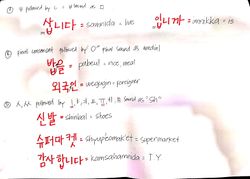 ① ㅂ followed by ㄴ = ㅂ sound as ㅁ
삽니다 = samnida = live 입니까 = imnikka = is
② final consonant followed by "O" final sound is medial
밥을 = pabeul = rice, meal
외국인 = waegugin = foreigner
③ ㅅ, ㅆ followed by sound as "sh"
신발 = shinbal = shoes
슈퍼마켓 = shyupeomaket = supermarket
감사합니다 = kamsahamnida = TY